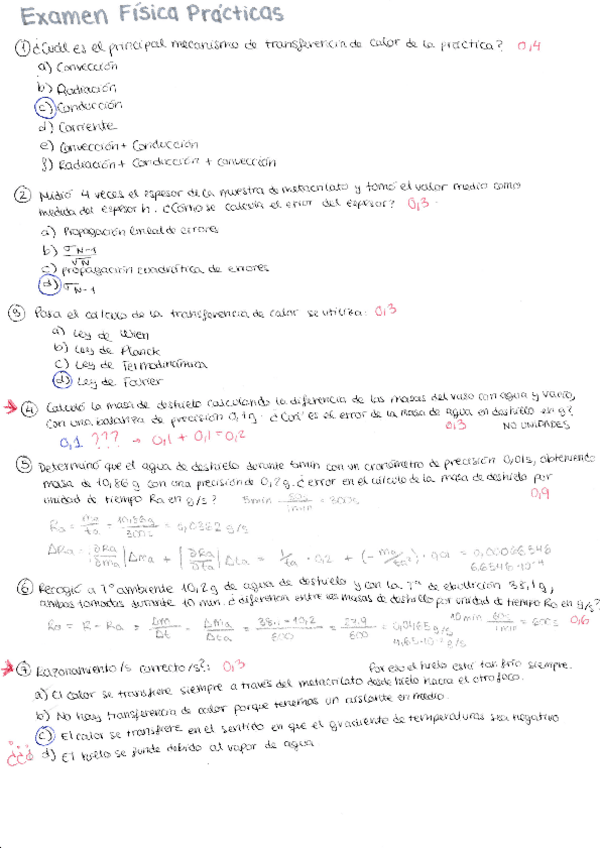 Examen Física Prácticas
① ¿Cuál es el principal mecanismo de transferencia de calor de la práctica? 0,4
a) Convección
b) Radiación
c) Conducción
d) Corriente
e) Convección + Conducción
f) Radiación + Conducción + convección
② Midió 4 veces el espesor de la muestra de metacrilato y tomó el valor medio como
medida del espesor h. ¿Cómo se calcula el error del espesor? 0,3
a) Propagación lineal de errores
b) σN-1/√N
c) propagación cuadrática de errores
d) σN-1
③ Para el cálculo de la transferencia de calor se utiliza: 0,3
a) Ley de Wien
b) Ley de Planck
c) Ley de Termodinámica
d) Ley de Fourier
④ Calculó la masa de deshielo calculando la diferencia de las masas del vaso con agua y vacío,
con una balanza de precisión 0,1g. ¿Cuál es el error de la masa de agua en deshielo en g?
0,1 ??? → 0,1 + 0,1 = 0,2 0,3 NO UNIDADES
⑤ Determinó que el agua de deshielo durante 5min con un cronómetro de precisión 0,01s, obteniendo
masa de 10,86g con una precisión de 0,2g. ¿error en el cálculo de la masa de deshielo por
unidad de tiempo Ra en g/s? 5min 60s/1min = 300s 0,9
Ra = ma/ta = 10,86g/300s = 0,0362 g/s
ΔRa = |∂Ra/∂ma| Δma + |∂Ra/∂ta| Δta = 1/ta · 0,2 + (-ma/ta²) · 0,01 = 0,00066546
6.6546·10⁻⁴
⑥ Recogió a Tª ambiente 10,2g de agua de deshielo y con la Tª de ebullición 38,1g,
ambas tomadas durante 10 min. ¿diferencia entre las masas de deshielo por unidad de tiempo Ro en g/s?
Ro = R - Ra = Δm/Δt - Δma/Δta = 38,1-10,2/600 = 27,9/600 = 0,0465 g/s 10min 60s/1min = 600s 0,6
4,65·10⁻² g/s
⑦ Razonamiento/s correcto/s?: 0,3 Por eso el hielo está tan frío siempre.
a) El calor se transfiere siempre a través del metacrilato desde hielo hacia el otro foco.
b) No hay transferencia de calor porque tenemos un aislante en medio.
c) El calor se transfiere en el sentido en que el gradiente de temperaturas sea negativo
¿¿¿ d) El hielo se funde debido al vapor de agua